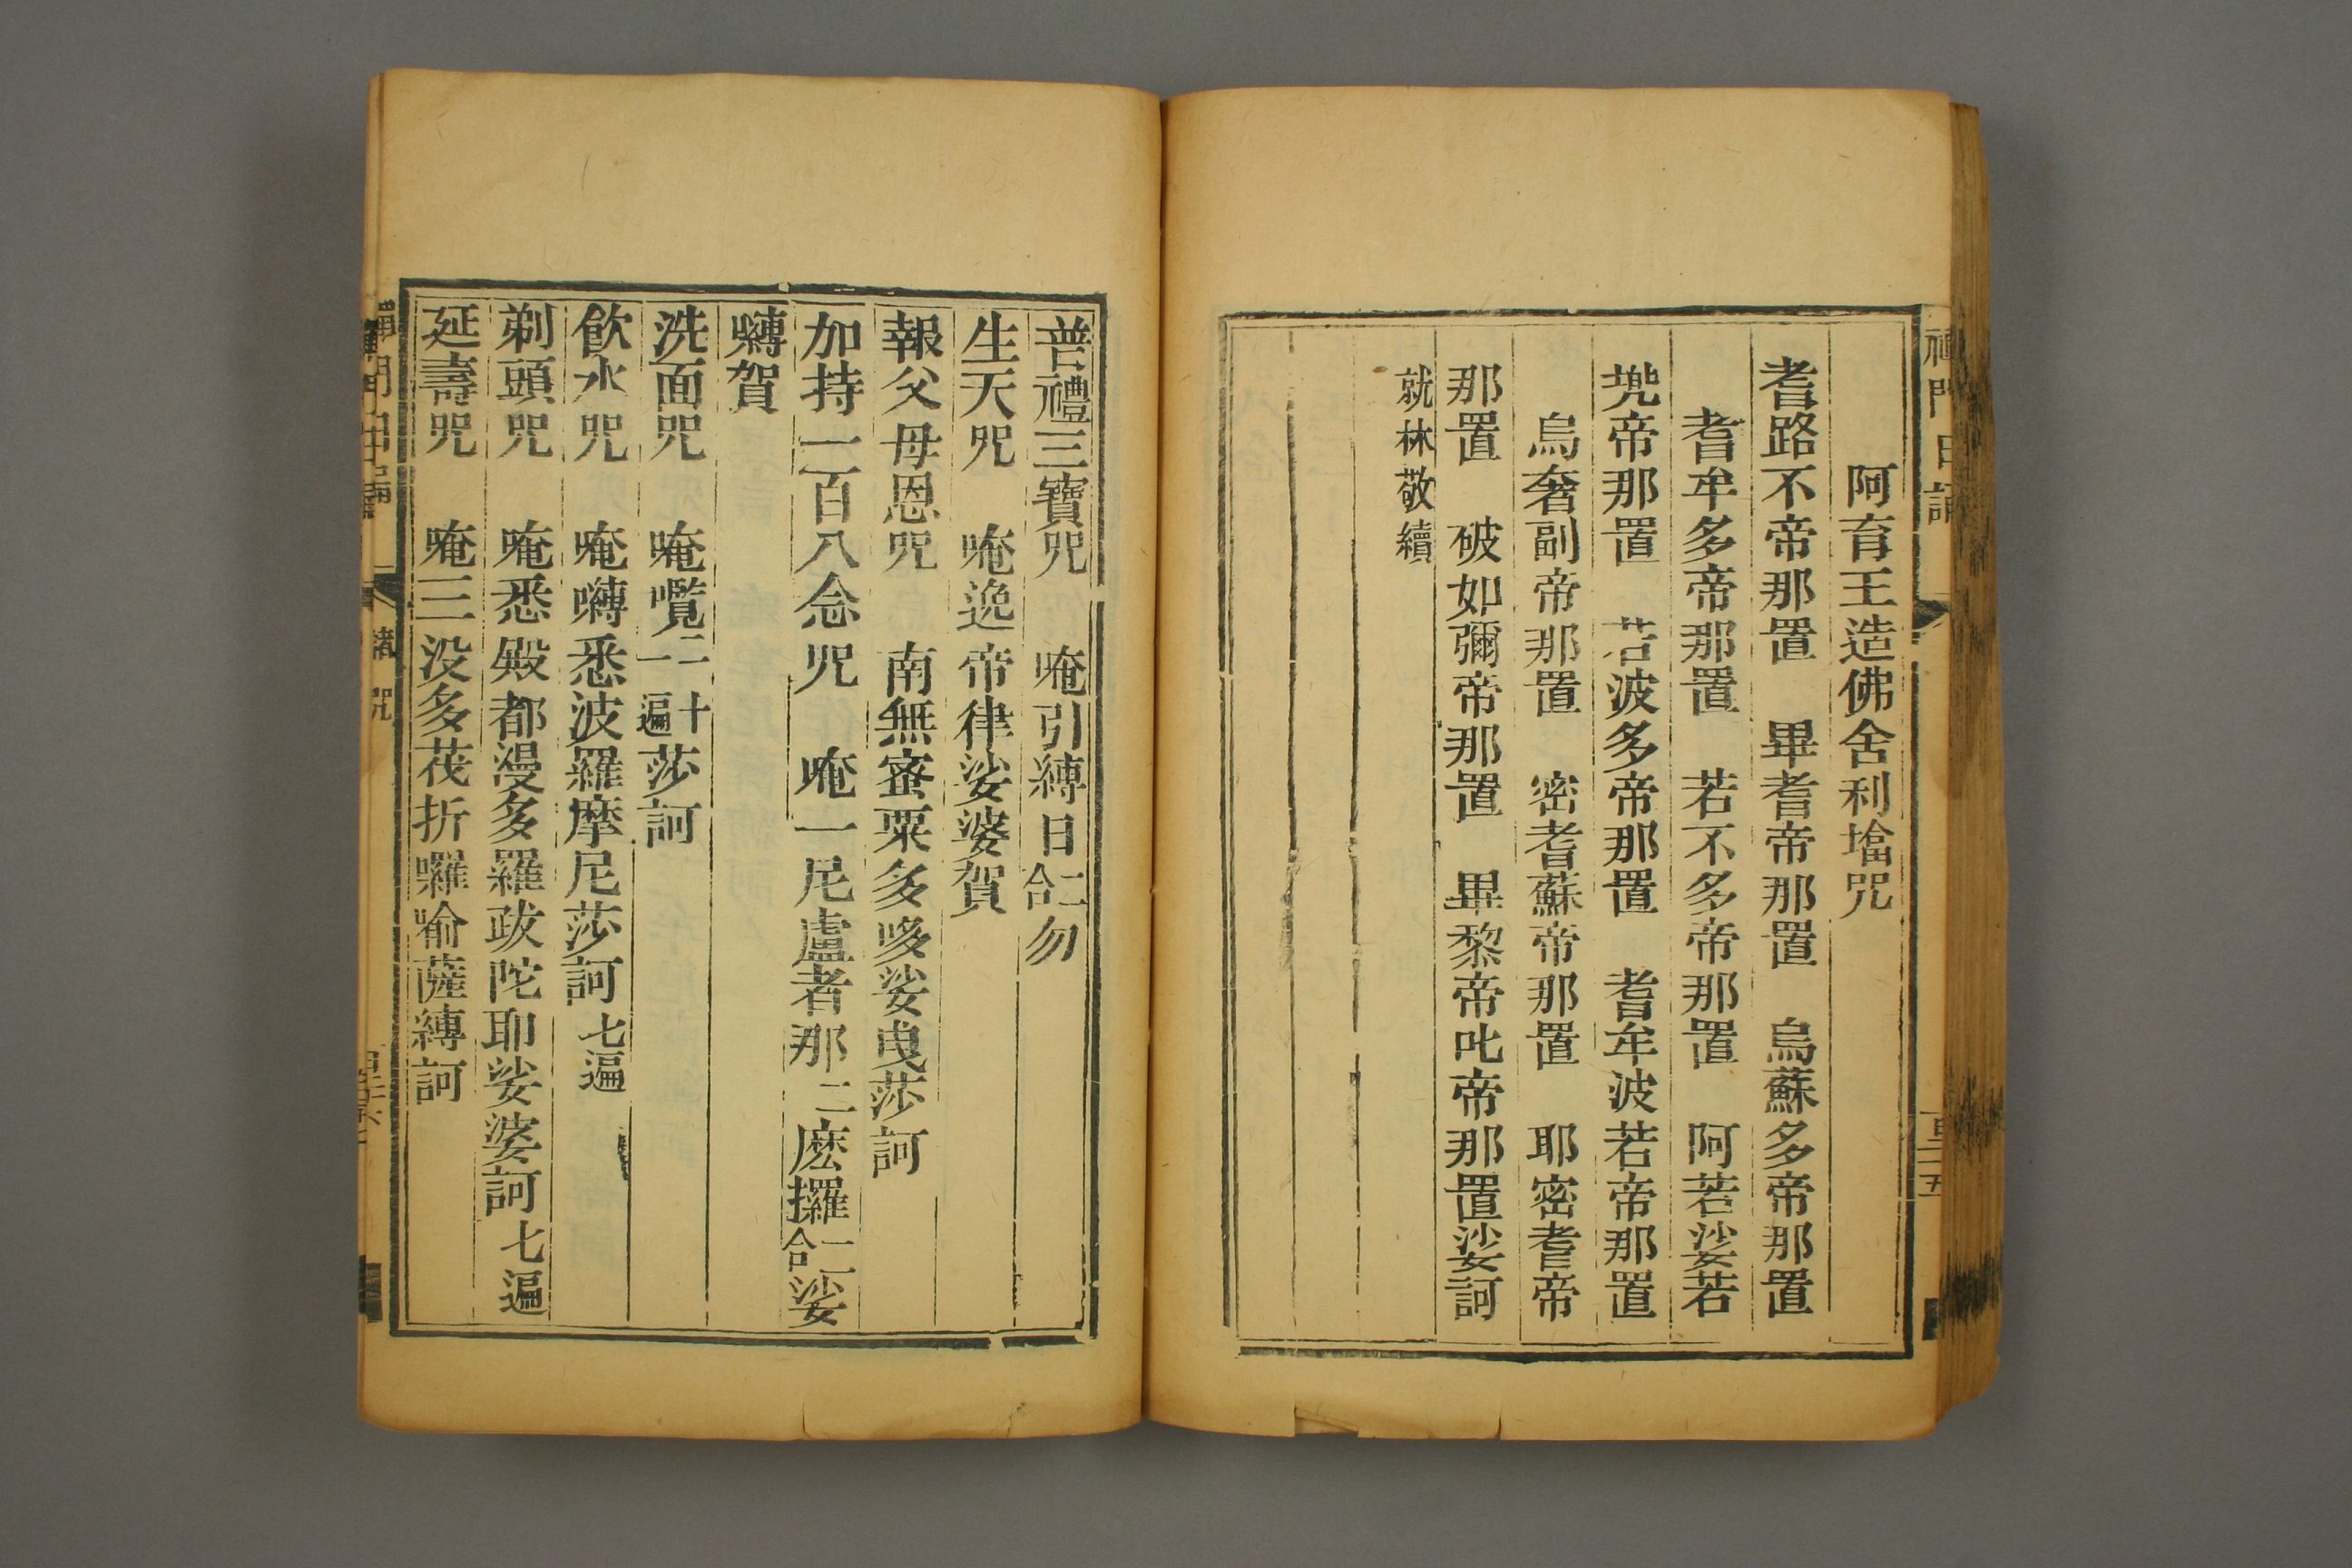 禪門日誦
阿育王造佛舍利墖咒
耆路不帝那置　畢耆帝那置　烏蘇多帝那置
耆牟多帝那置　若不多帝那置　阿若娑若
兠帝那置　若波多帝那置　耆牟波若帝那置
烏奢副帝那置　密耆蘇帝那置　耶密耆帝
那置　破如彌帝那置　畢黎帝叱帝那置娑訶
就林敬續
普禮三寶咒　唵引縛日二合勿
生天咒　唵逸帝律娑婆賀
報父母恩咒　南無蜜粟多哆娑曳莎訶
加持一百八念咒　唵一尾盧者那二麽攞二合娑
嚩賀
洗面咒　唵嚂二十一遍莎訶
飲水咒　唵嚩悉波羅摩尼莎訶七遍
剃頭咒　唵悉殿都漫多羅跋陀耶娑婆訶七遍
延壽咒　唵三没多茷折囉喻薩縛訶
諸咒